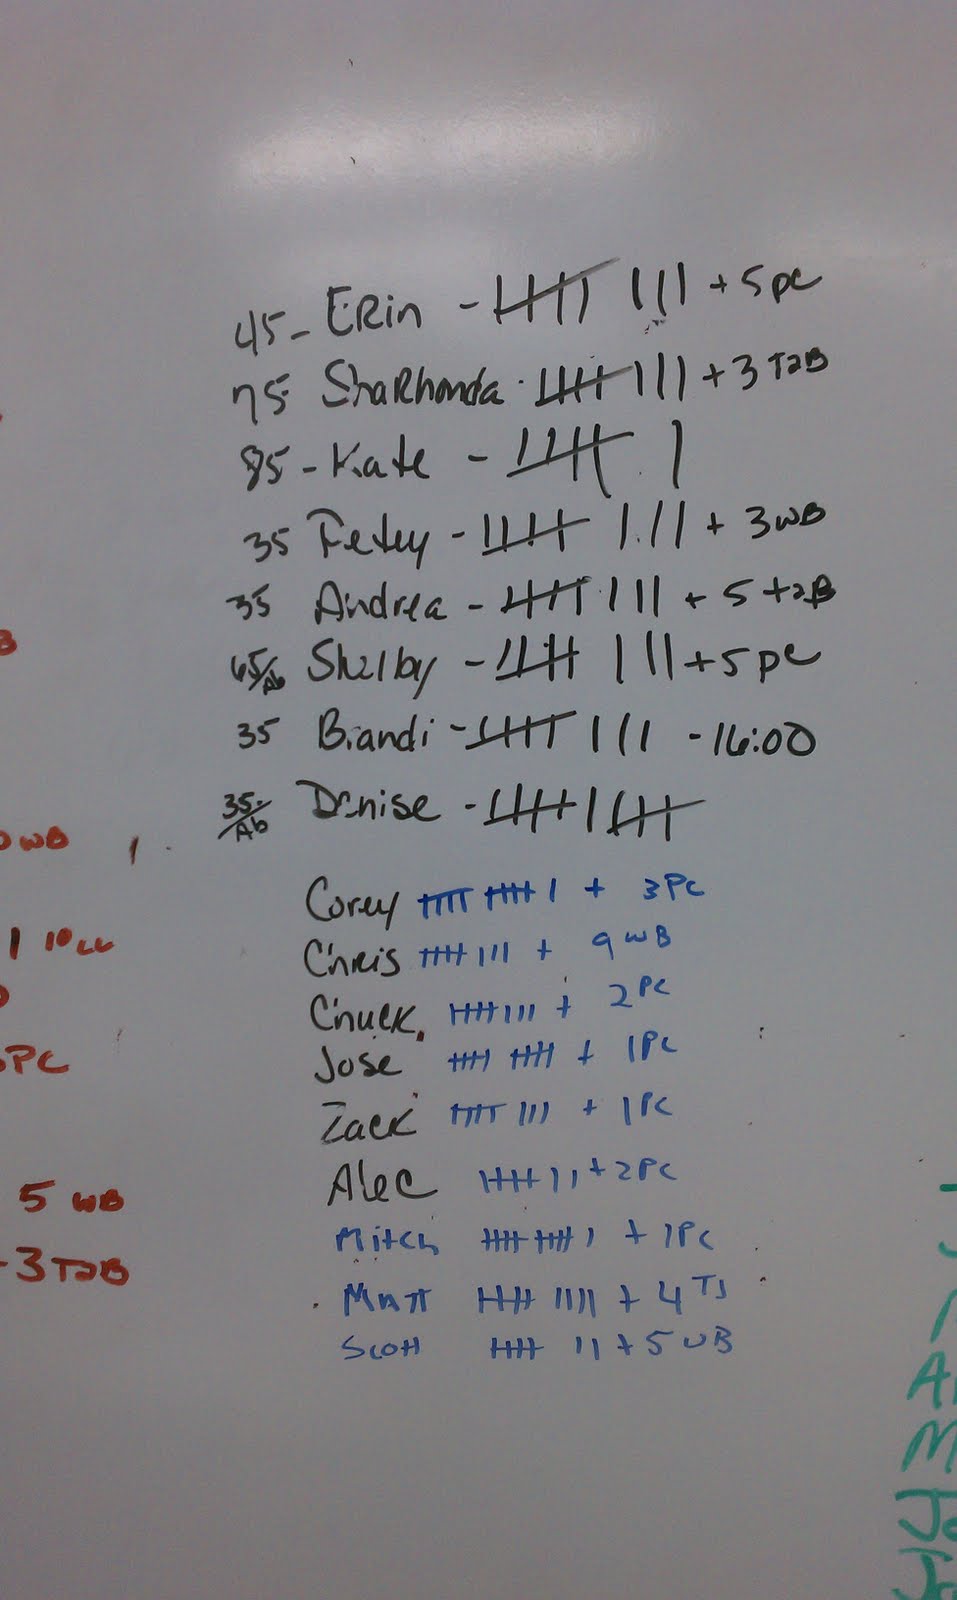 45 - Erin - 卌 ||| + 5 pc
75 ShaRhonda - 卌 ||| + 3 T2B
85 - Kate - 卌 |
35 Fetey - 卌 ||| + 3 WB
35 Andrea - 卌 ||| + 5 t2B
65/Ab Shelby - 卌 ||| + 5 pc
35 Biandi - 卌 ||| - 16:00
35/Ab Denise - 卌 | 卌
Corey 卌 卌 | + 3 PC
Chris 卌 ||| + 9 WB
Chuck 卌 ||| + 2 PC
Jose 卌 卌 + 1 PC
Zack 卌 ||| + 1 PC
Alec 卌 || + 2 PC
Mitch 卌 卌 | + 1 PC
Matt 卌 |||| + 4 TJ
Scott 卌 || + 5 WB
WB
1 10
PC
5 WB
3 T2B